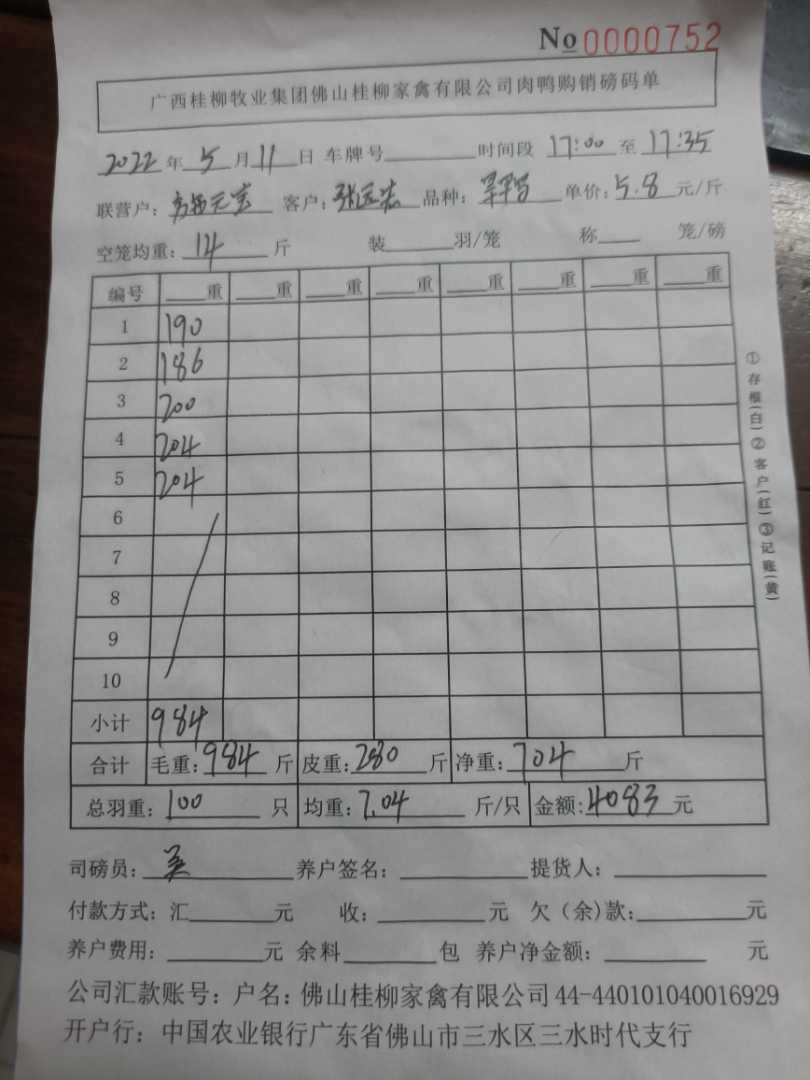 No 0000752
广西桂柳牧业集团佛山桂柳家禽有限公司肉鸭购销磅码单
2022 年 5 月 11 日 车牌号 时间段 17:00 至 17:35
联营户： 客户：张 品种： 单价：5.8 元/斤
空笼均重：14 斤 装 羽/笼 称 笼/磅
编号 重 重 重 重 重 重 重 重
1 190
2 186
3 200
4 204
5 204
6
7
8
9
10
小计 984
合计 毛重：984 斤 皮重：280 斤 净重：704 斤
总羽重：100 只 均重：7.04 斤/只 金额：4083 元
司磅员： 养户签名： 提货人：
付款方式：汇 元 收： 元 欠（余）款： 元
养户费用： 元 余料 包 养户净金额： 元
公司汇款账号：户名：佛山桂柳家禽有限公司 44-440101040016929
开户行：中国农业银行广东省佛山市三水区三水时代支行
①存根（白）②客户（红）③记账（黄）